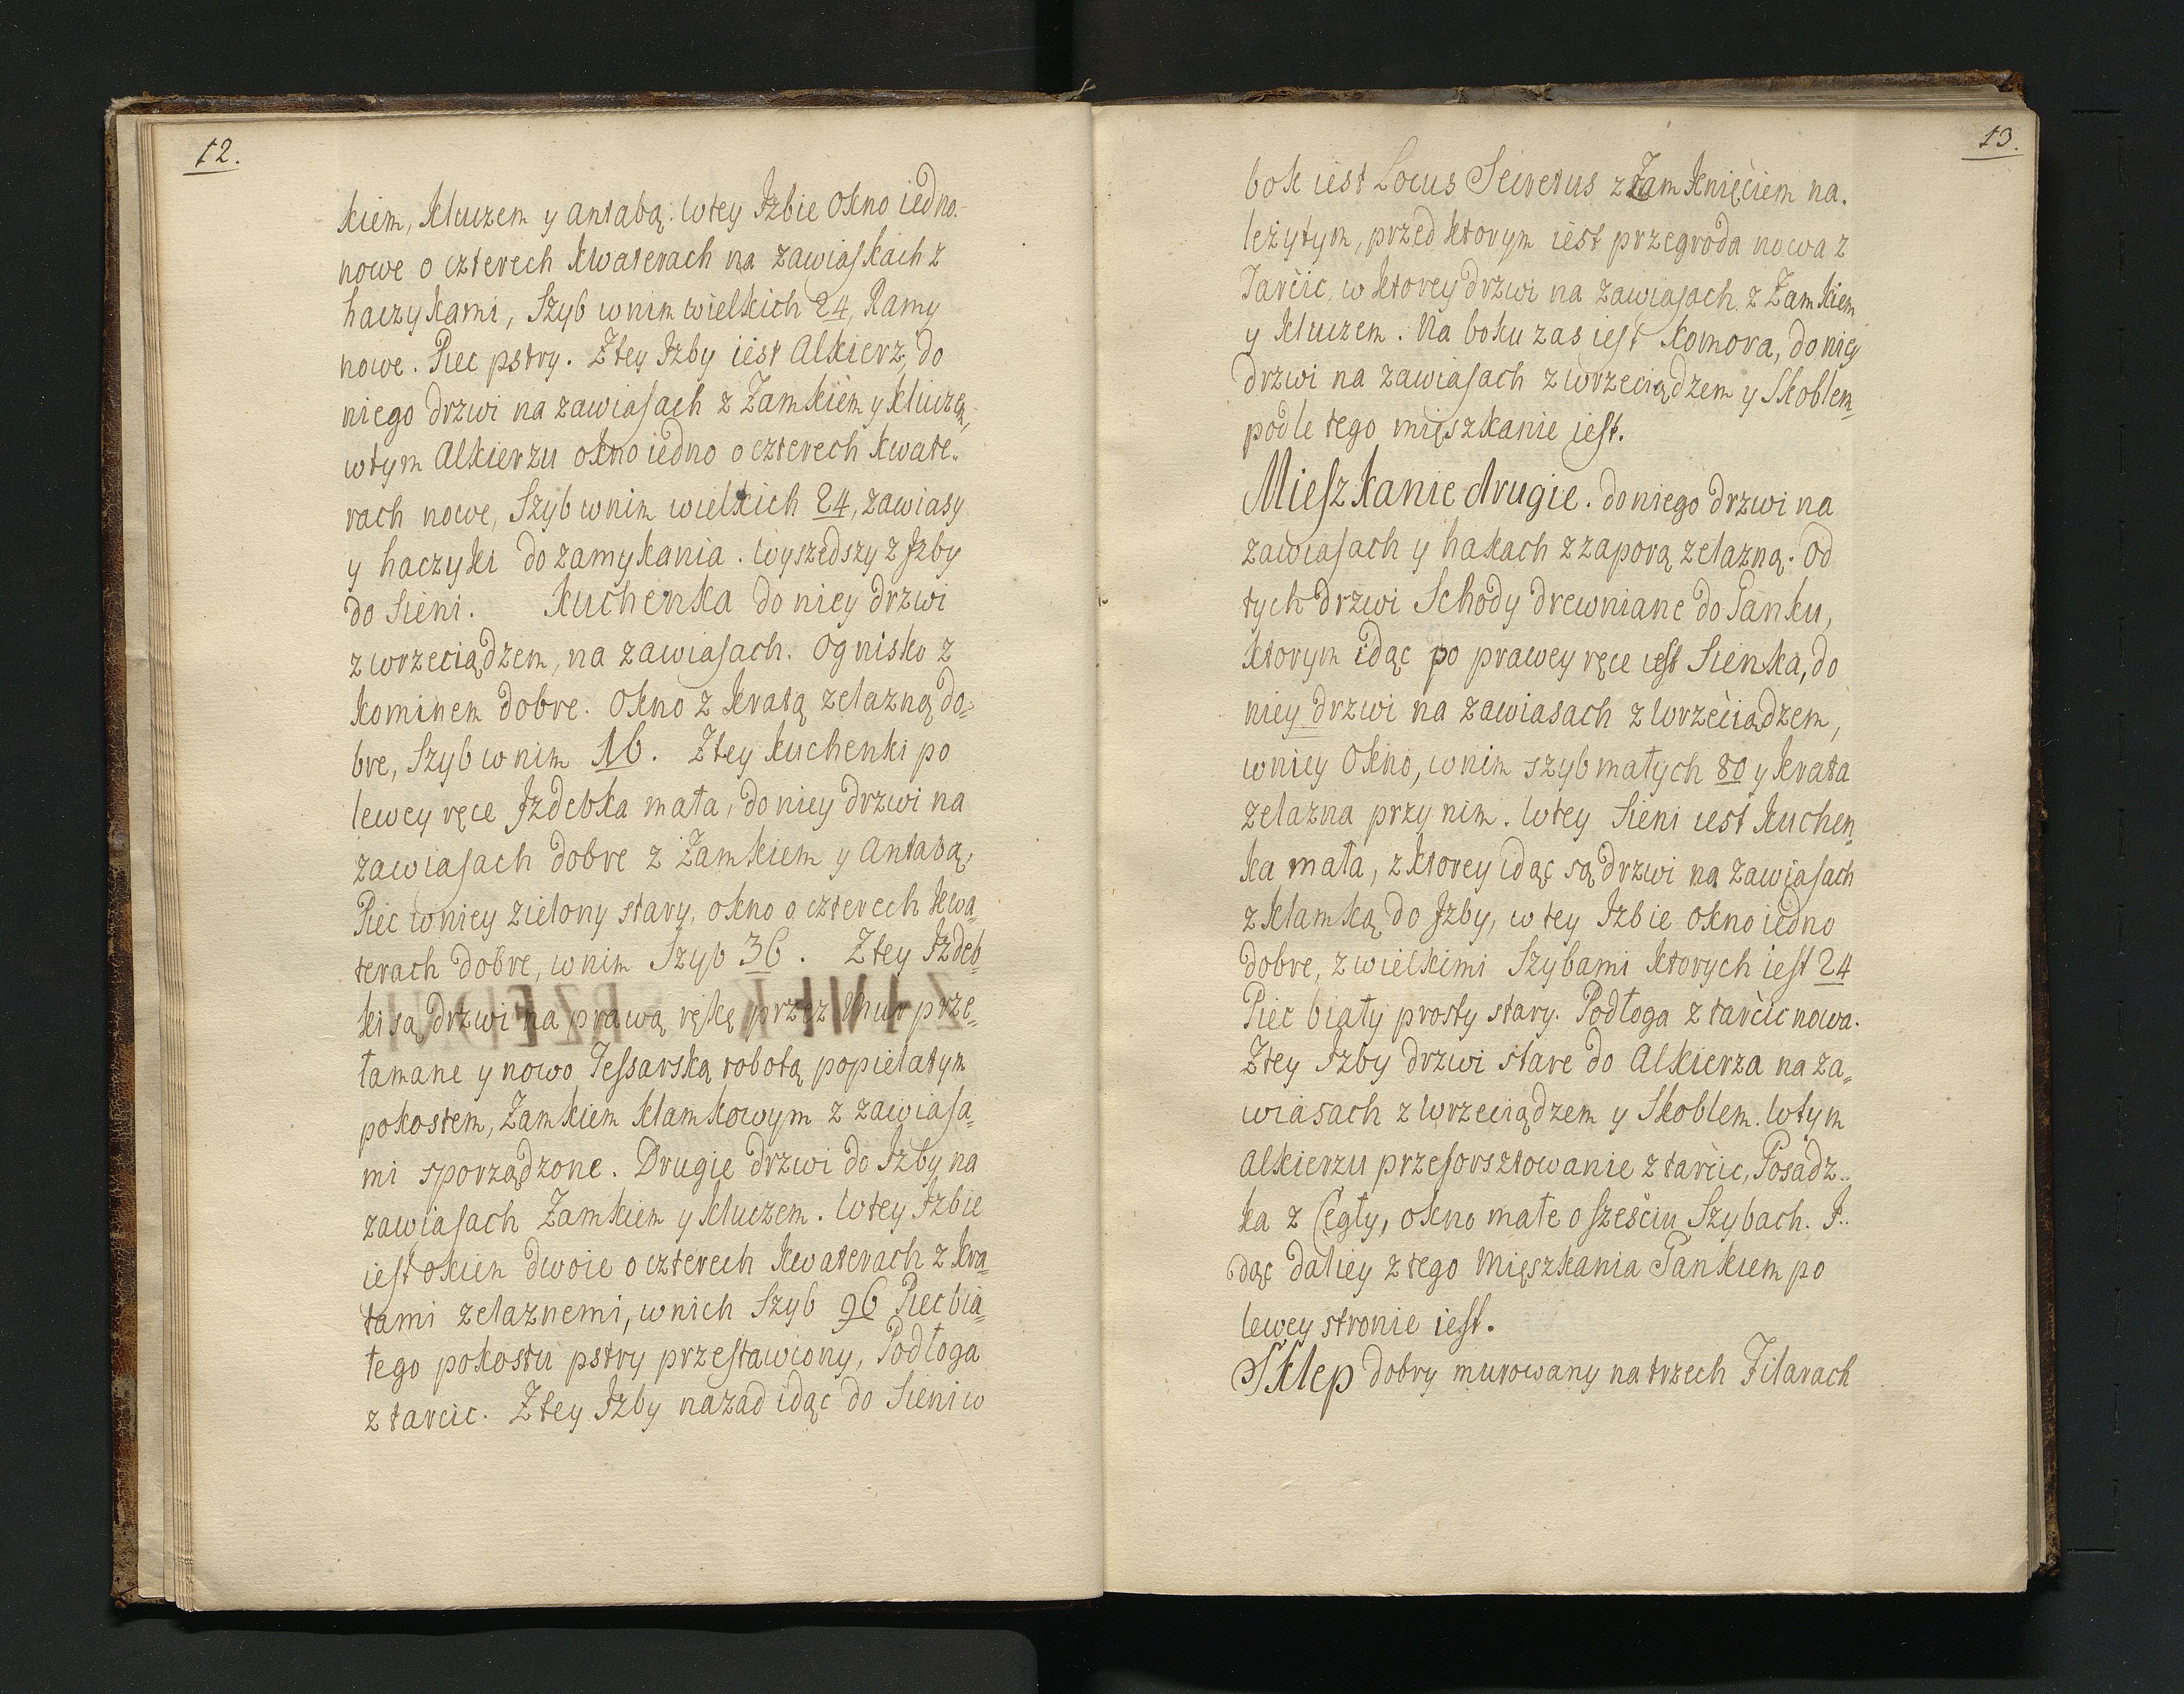 12.
kiem, kluczem y antabą. Wtey Izbie Okno iedno.
nowe o czterech kwaterach na zawiaskach z
haczykami, Szyb wnim wielkich 24, Ramy
nowe. Piec pstry. Ztey Izby iest Alkierz, do
niego drzwi na zawiasach z Zamkiem y kluczem,
wtym Alkierzu okno iedno o czterech kwate-
rach nowe, Szyb wnim wielkich 24, zawiasy
y haczyki do zamykania. Wyszedszy z Izby
do Sieni. Kuchenka do niey drzwi
z wrzeciądzem, na zawiasach. Ognisko z
kominem dobre. Okno z kratą zelazną do-
bre, Szyb w nim 16. Ztey kuchenki po
lewey ręce Izdebka mała, do niey drzwi na
zawiasach dobre z Zamkiem y Antabą,
Piec wniey zielony stary, okno o czterech kwa-
terach dobre, wnim Szyb 36. Ztey Izdeb-
ki są drzwi na prawą rękę przez Mur prze-
łamane y nowo Tessarską robotą popielatym
pokostem, Zamkiem klamkowym z zawiasa-
mi sporządzone. Drugie drzwi do Izby na
zawiasach Zamkiem y kluczem. Wtey Izbie
iest okien dwoie o czterech kwaterach z kra-
tami zelaznemi, wnich Szyb 96 Piec bia-
łego pokostu pstry przestawiony, Podłoga
z tarcic. Ztey Izby nazad idąc do Sieni w
13.
bok iest Locus Secretus z Zamknięciem na.
leżytym, przed ktorym iest przegroda nowa z
Tarcic, w ktorey drzwi na zawiasach z Zamkiem
y kluczem. Na boku zas iest komora, do niey
drzwi na zawiasach z wrzeciądzem y Skoblem,
podle tego mięszkanie iest.
Mieszkanie drugie. do niego drzwi na
zawiasach y hakach z zaporą zelazną. Od
tych drzwi Schody drewniane do Ganku,
ktorym idąc po prawey ręce iest Sienka, do
niey drzwi na zawiasach z Wrzeciądzem,
wniey Okno, wnim szyb małych 80 y krata
zelazna przy nim. Wtey Sieni iest kuchen-
ka mała, z ktorey idąc są drzwi na zawiasach
z klamką do Izby, w tey Izbie okno iedno
dobre, z wielkimi Szybami ktorych iest 24
Piec biały prosty stary. Podłoga z tarcic nowa.
Ztey Izby drzwi stare do Alkierza na za-
wiasach z Wrzeciądzem y Skoblem. Wtym
Alkierzu przeforsztowanie z tarcic, Posadz-
ka z Cegły, okno małe o sześciu Szybach. I-
dąc daliey z tego Mięszkania Gankiem po
lewey stronie iest.
Sklep dobry murowany na trzech Filarach